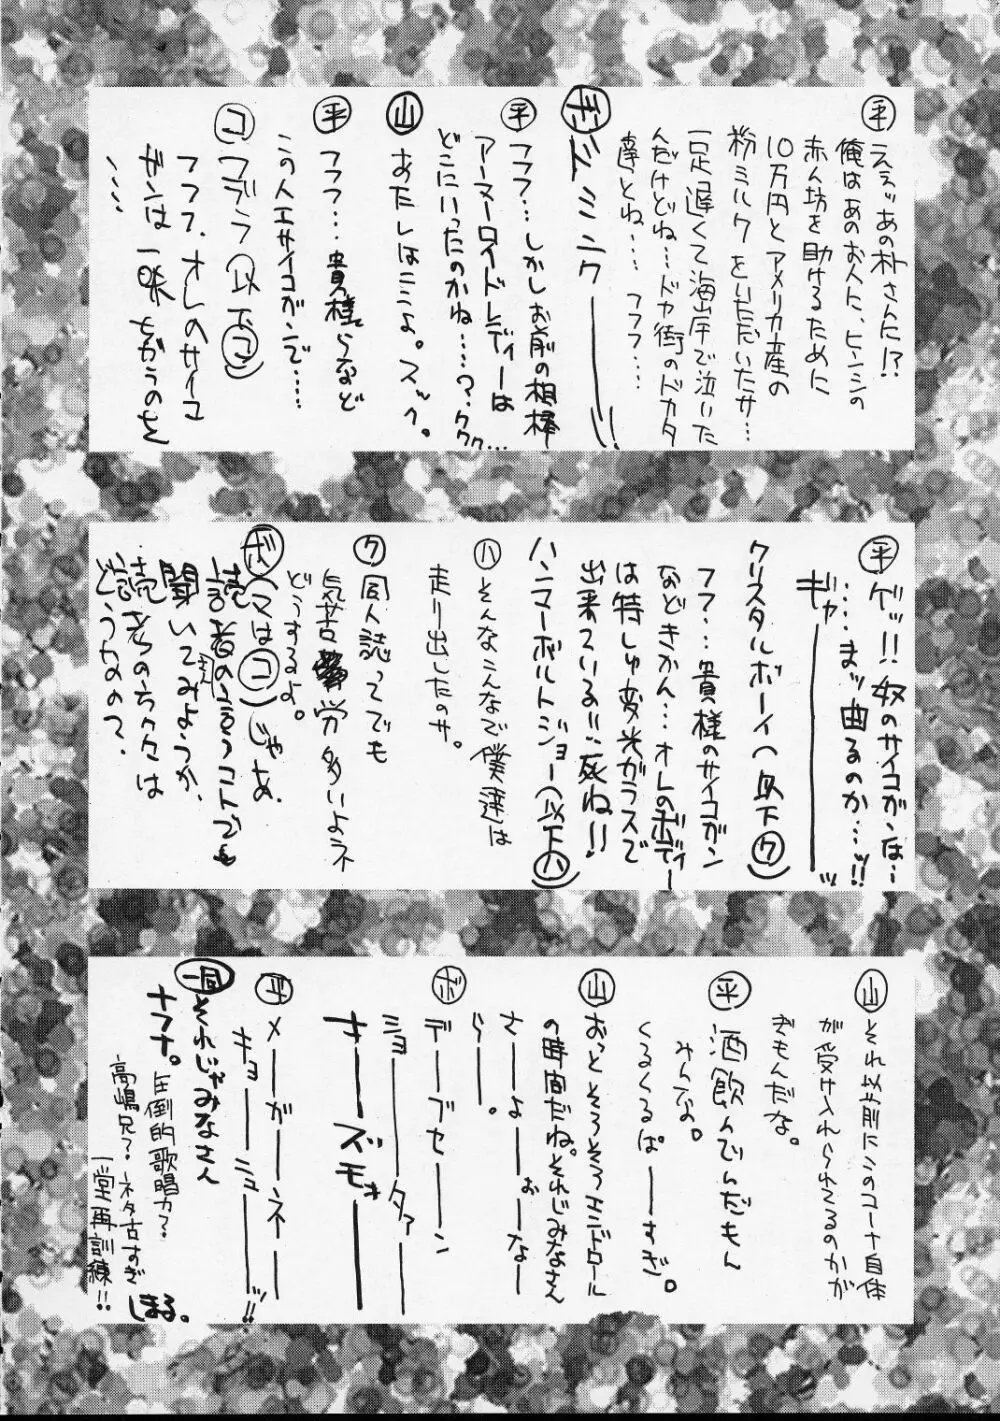 ㊍ええッあの朴さんに!?
俺はあのお人に、ヒンシの
赤ん坊を助けるために
10万円とアメリカ産の
粉ミルクをいただいたサ…
一足遅くて海岸で泣いた
んだけどね…ドヤ街のドカタ
達とね… フフフ…
ボ ドミニクーーー!!
平 フフフ…しかしお前の相棒
アーマーロイドレディーは
どこにいったのかね……?ククク…
山 あたしはここよ。スッ。
平 フフフ…貴様らなど
この人工サイコガンで……
コ コブラ(以下コ)
フフフ、オレのサイコ
ガンは一味ちがうのさ
、、、、
平 ゲッ!!奴のサイコガンは…
……まッ曲るのか…!!
ギャーーーッ
クリスタルボーイ(以下ク)
フフ…貴様のサイコガン
などきかん…オレのボディー
は特しゅ変光ガラスで
出来ている!!死ね!!
ハンマーボルトジョー(以下ハ)
ハ そんなこんなで僕達は
走り出したのサ。
ク 同人誌ってでも
気苦労多いよネ
どうするよ。
ボ(マはコ)じゃあ、
読者の言うコトでも
聞いてみようか、
読者のちみは
どうなの?
山 それ以前にこのコーナ自体
が受け入れられてるのかが
ぎもんだな。
平 酒飲んでんだもん
みんな。
くるくるぱーーすぎ。
山 おっとそろそろエンドロール
の時間だね。それじみなさん
さーよーおーなー
らー。
ボ デーブセーン
ショーータァーー
さーーズモォーー
平 メーガーネー
キョーーシューーッ!!
一同 それじゃみなさん
ナフナ。
圧倒的歌唱力?
高嶋兄?ネタ古すぎ
一堂再訓練!!
しまる。